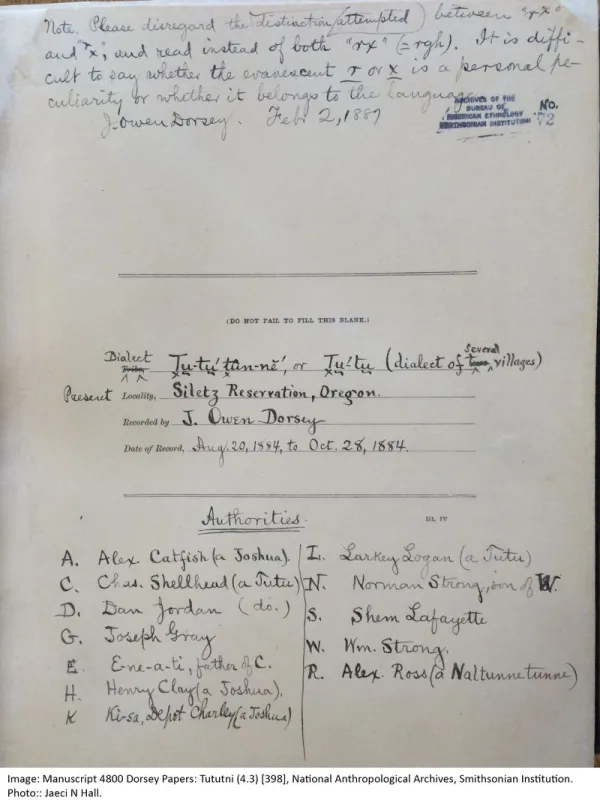 Note. Please disregard the distinction (attempted) between "rx"
and "x", and read instead of both "rx" (= rgh). It is diffi-
cult to say whether the evanescent r or x is a personal pe-
culiarity or whether it belongs to the language.
J. Owen Dorsey. Feb. 2, 1887
ARCHIVES OF THE
BUREAU OF
AMERICAN ETHNOLOGY
SMITHSONIAN INSTITUTION
No.
72
(DO NOT FAIL TO FILL THIS BLANK.)
Dialect Tribe Ṭu-ṭu' ṭûn-nĕ', or Ṭu'-ṭu (dialect of two several villages)
Present Locality, Siletz Reservation, Oregon.
Recorded by J. Owen Dorsey
Date of Record, Aug. 20, 1884, to Oct. 28, 1884.
Authorities.
III, IV
A. Alex. Catfish (a Joshua).
C. Chas. Shellhead (a Tutu)
D. Dan Jordan (do.)
G. Joseph Gray
E. E-ne-a-ti, father of C.
H. Henry Clay (a Joshua).
K Ki-sa, Depot Charley (a Joshua)
L. Larkey Logan (a Tutu)
N. Norman Strong, son of W.
S. Shem Lafayette
W. Wm. Strong.
R. Alex. Ross (a Naltunnetunne)
Image: Manuscript 4800 Dorsey Papers: Tututni (4.3) [398], National Anthropological Archives, Smithsonian Institution.
Photo:: Jaeci N Hall.